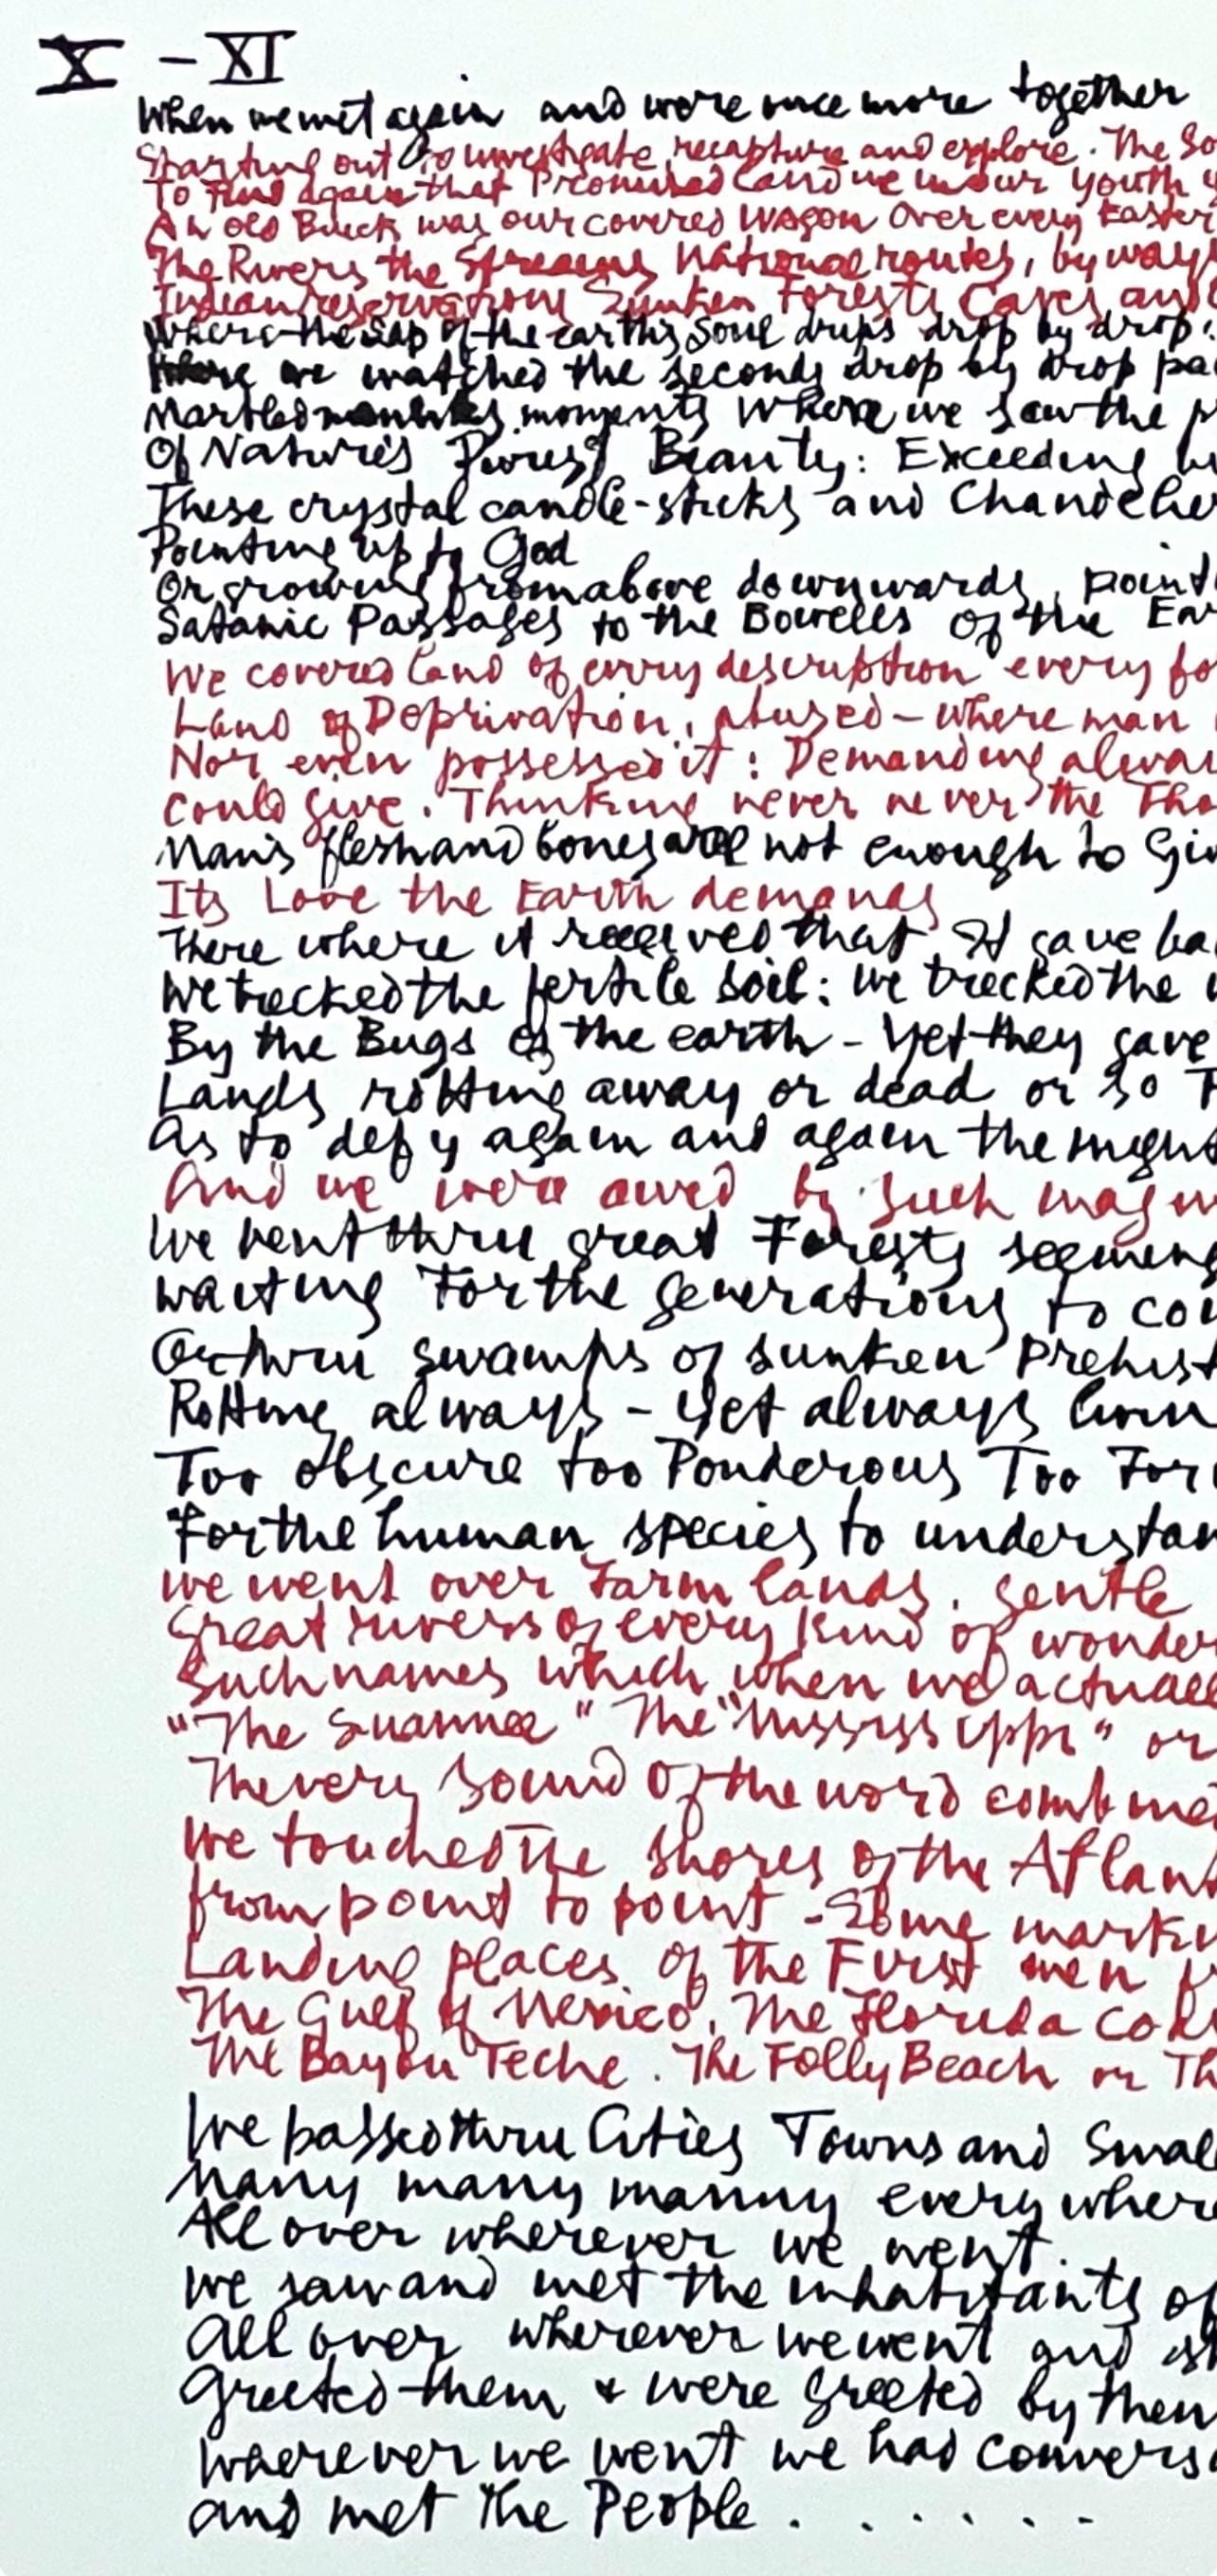 X - XI
When we met again and were once more together
Starting out to investigate, recapture and explore. The So
To Find again that Promised Land we in our youth
An old Buick was our covered Wagon Over every Easter
The Rivers the Streams National routes, by ways
Indian reservations Sunken Forests Caves and
Where the Sap of the earths Soul drips drop by drop.
Where we watched the seconds drop by drop pa
Marbled moments where we saw the p
Of Nature's Purest Beauty: Exceeding
These crystal candle-sticks and Chandelier
Pointing up to God
Or growing from above downwards, point
Satanic Passages to the Bowells Of the Ear
We covered land of every description every fo
Land of Deprivation, abused - where man
Nor even possessed it: Demanding alwa
could give. Thinking never never the Tho
Man's flesh and bones are not enough to Giv
Its Love the Earth demands
There where it received that It gave ba
We trecked the fertile soil: We trecked the
By the Bugs of the earth - Yet they gave
Lands rotting away or dead or so F
As to defy again and again the might
And we were awed by such magn
We went thru great Forests seeming
waiting For the generations to co
Or thru swamps of sunken Prehist
Rotting always - Yet always livin
Too obscure too Ponderous Too For
For the human species to understan
We went over Farm lands. gentle
Great rivers of every kind of wonder
Such names which when we actuall
"The Suannee" The "Mississippi" or
The very sound Of the word combine
We touched the shores of the Atlant
from point to point - Some mark
Landing places of the First men
The Gulf of Mexico, The Florida Co
The Bayou Teche. The Folly Beach or Th
We passed thru Cities Towns and Smal
Many many manny every where
All over wherever we went.
We saw and met the inhabitants of
All over wherever we went and
Greeted them & were greeted by them
Wherever we went we had convers
and met the People . . . . . .